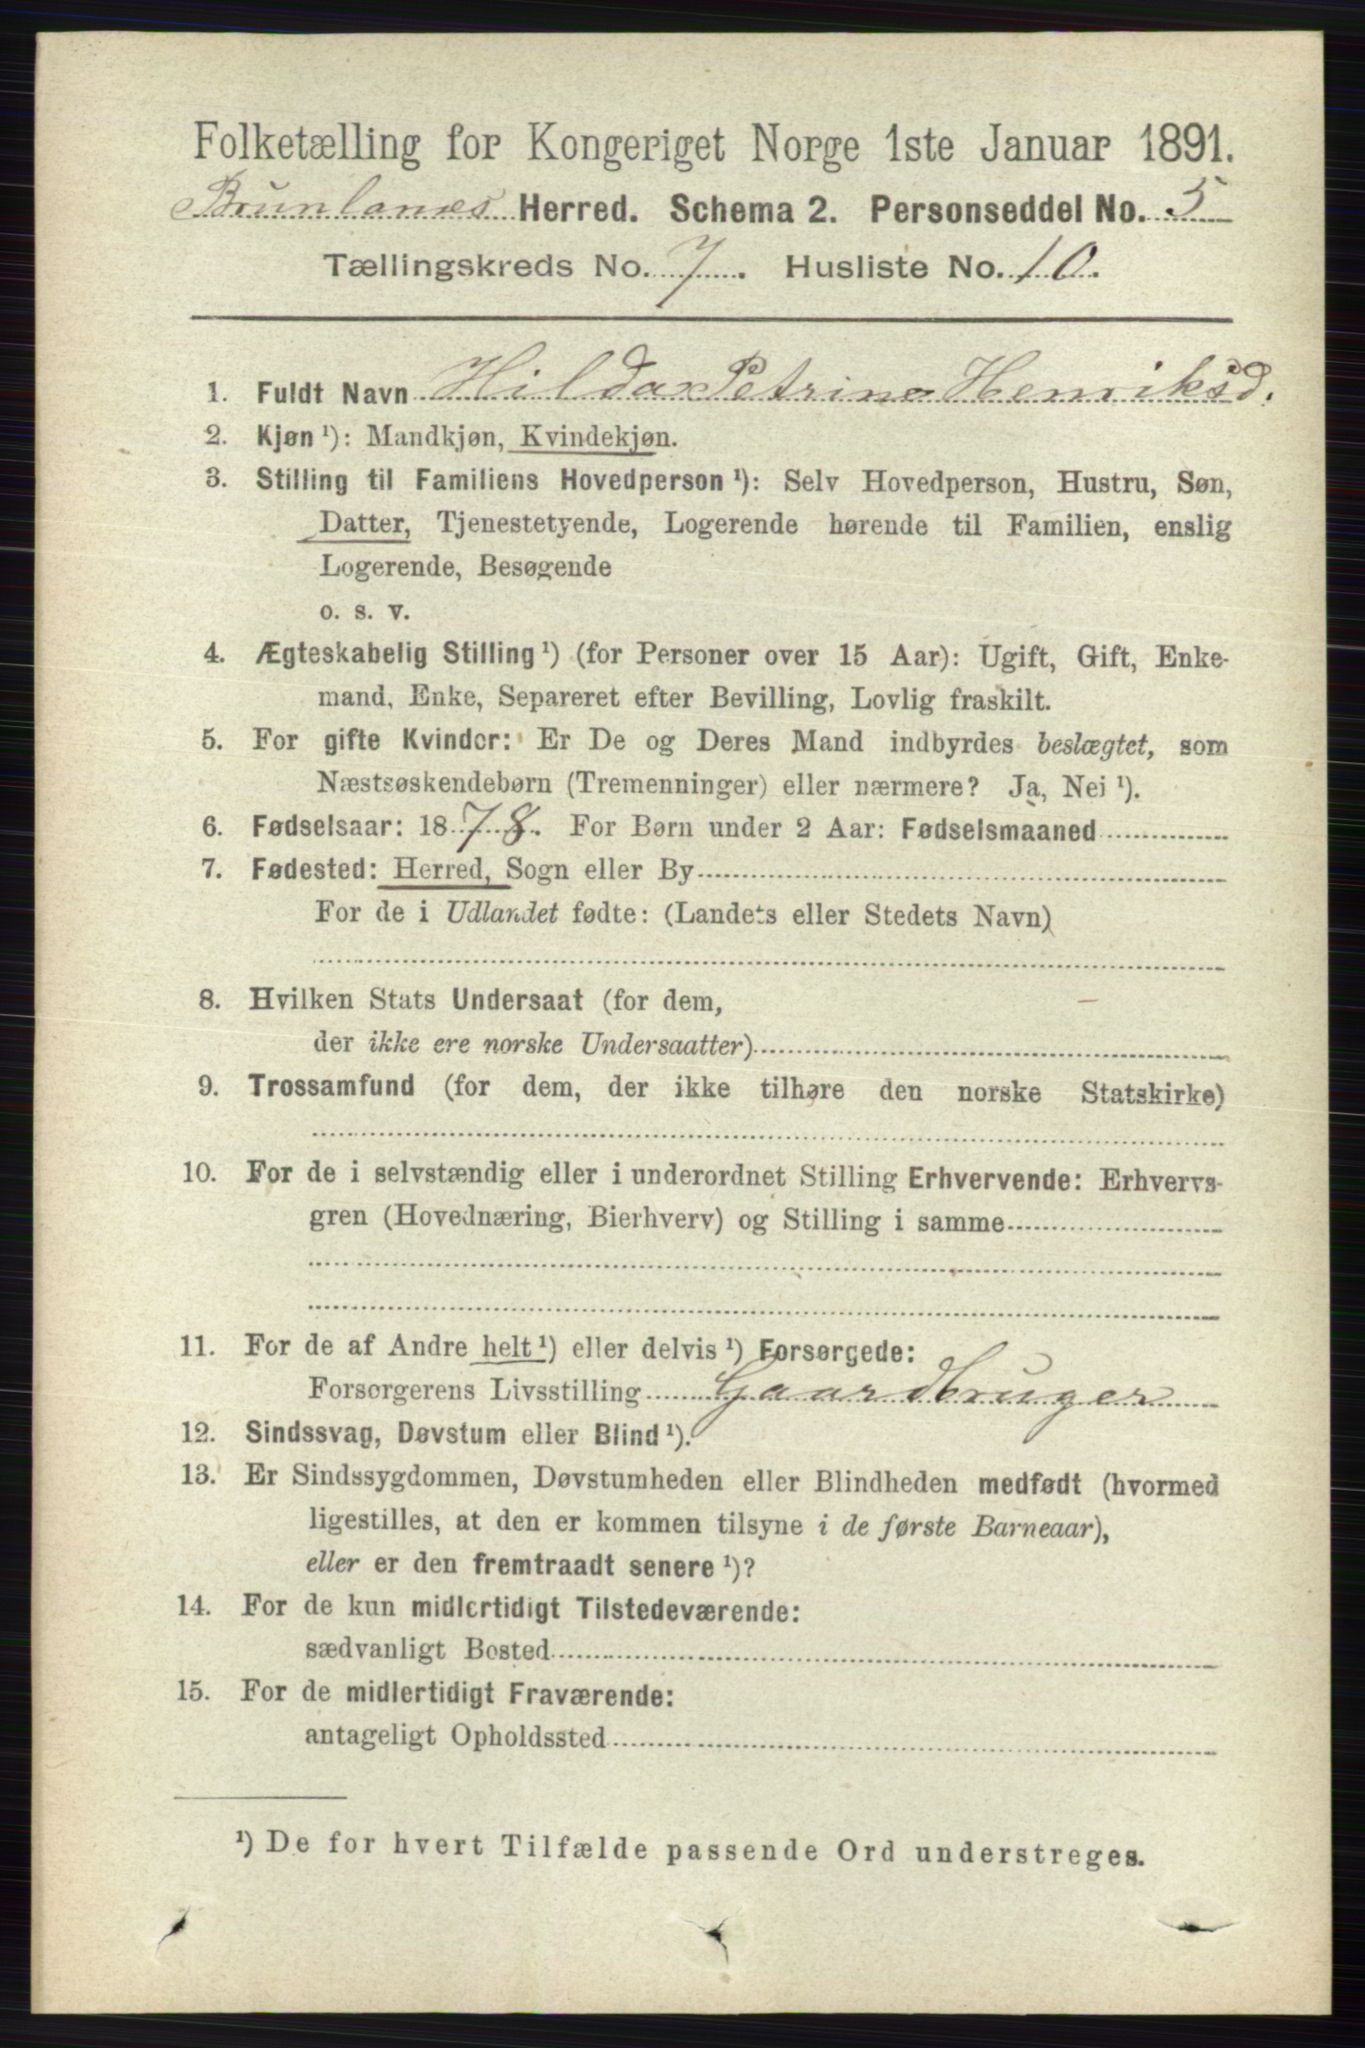 Folketælling for Kongeriget Norge 1ste Januar 1891.
Brunlanæs Herred. Schema 2. Personseddel No. 5
Tællingskreds No. 7. Husliste No. 10.
1. Fuldt Navn Hilda Petrine Henriksd.
2. Kjøn ¹): Mandkjøn, Kvindekjøn.
3. Stilling til Familiens Hovedperson ¹): Selv Hovedperson, Hustru, Søn,
Datter, Tjenestetyende, Logerende hørende til Familien, enslig
Logerende, Besøgende
o. s. v.
4. Ægteskabelig Stilling ¹) (for Personer over 15 Aar): Ugift, Gift, Enke-
mand, Enke, Separeret efter Bevilling, Lovlig fraskilt.
5. For gifte Kvinder: Er De og Deres Mand indbyrdes beslægtet, som
Næstsøskendebørn (Tremenninger) eller nærmere? Ja, Nei ¹).
6. Fødselsaar: 1878. For Børn under 2 Aar: Fødselsmaaned
7. Fødested: Herred, Sogn eller By
For de i Udlandet fødte: (Landets eller Stedets Navn)
8. Hvilken Stats Undersaat (for dem,
der ikke ere norske Undersaatter)
9. Trossamfund (for dem, der ikke tilhøre den norske Statskirke)
10. For de i selvstændig eller i underordnet Stilling Erhvervende: Erhvervs-
gren (Hovednæring, Bierhverv) og Stilling i samme
11. For de af Andre helt ¹) eller delvis ¹) Forsørgede:
Forsørgerens Livsstilling Gaardbruger
12. Sindssvag, Døvstum eller Blind ¹).
13. Er Sindssygdommen, Døvstumheden eller Blindheden medfødt (hvormed
ligestilles, at den er kommen tilsyne i de første Barneaar),
eller er den fremtraadt senere ¹)?
14. For de kun midlertidigt Tilstedeværende:
sædvanligt Bosted
15. For de midlertidigt Fraværende:
antageligt Opholdssted
¹) De for hvert Tilfælde passende Ord understreges.